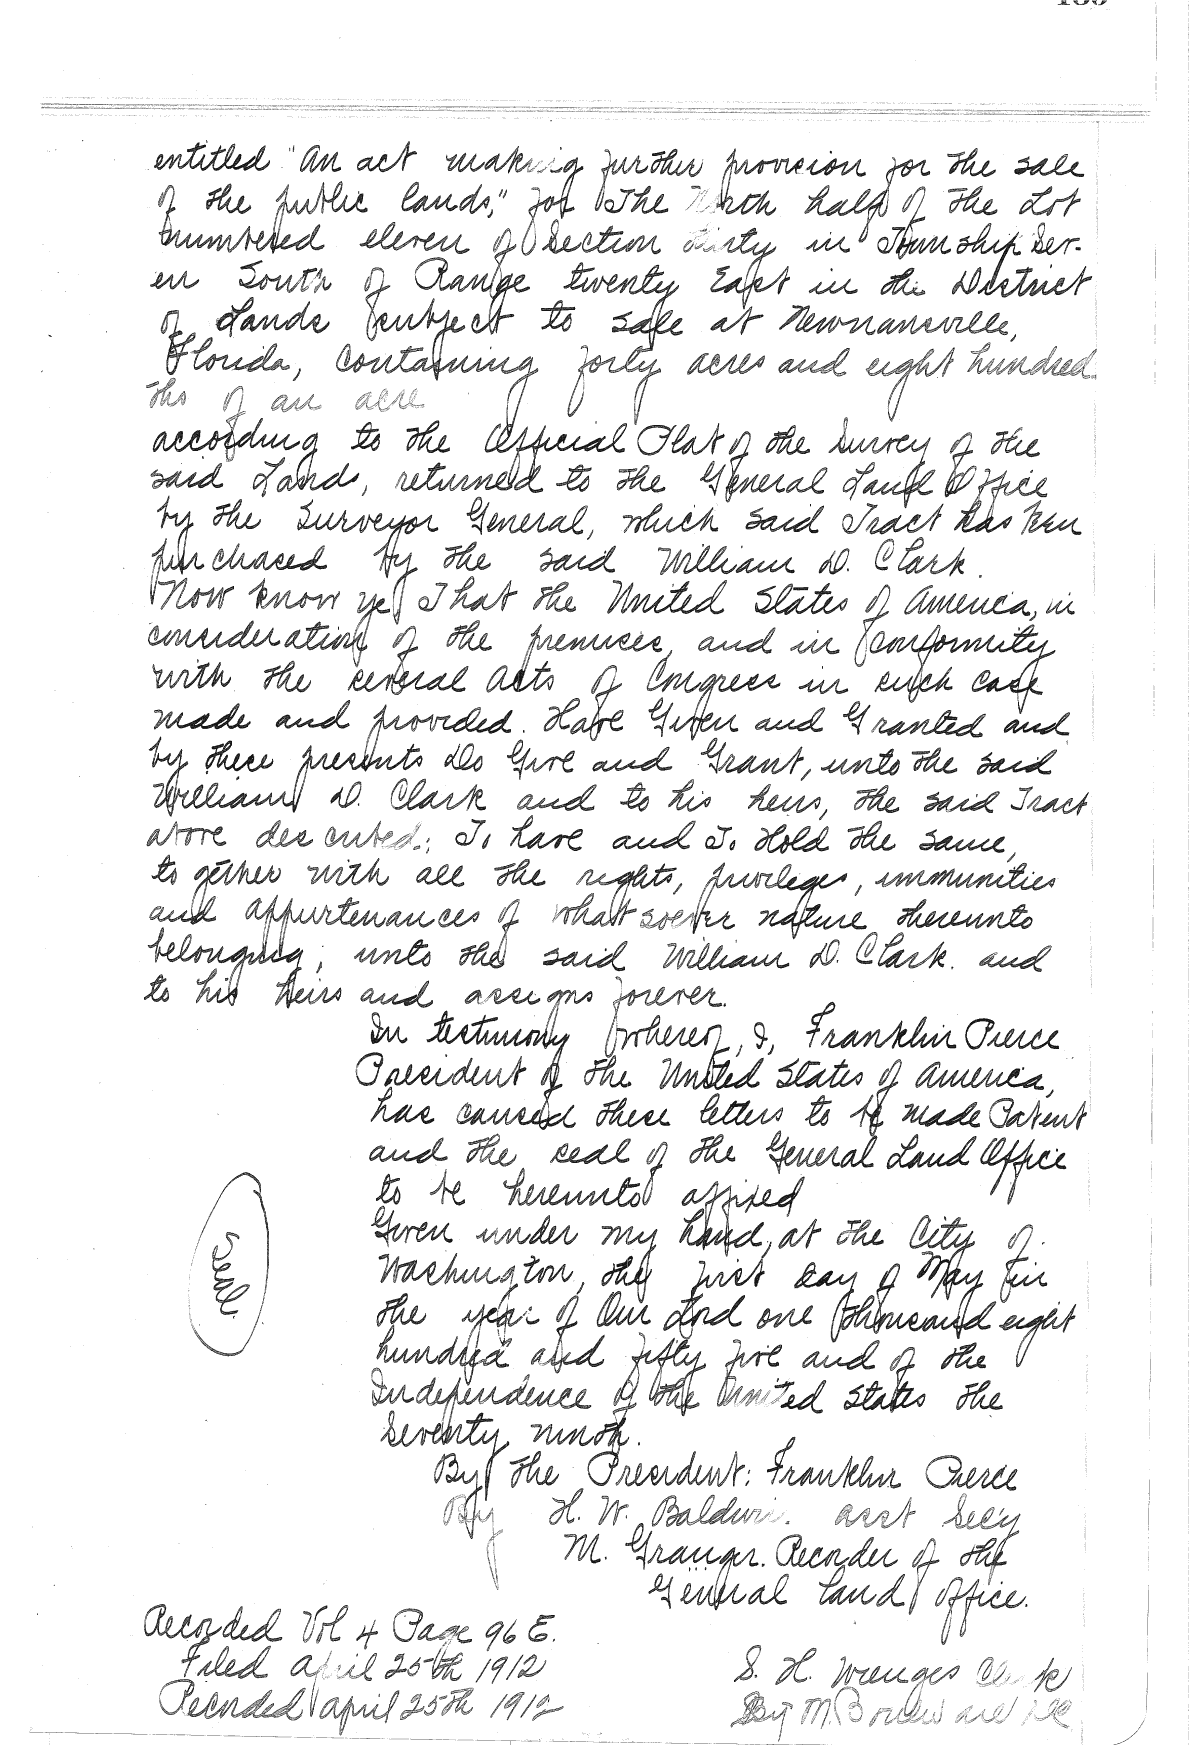 entitled "An act making further provision for the sale
of the public lands," for The North half of the Lot
numbered eleven of Section thirty in Township Sev-
en South of Range twenty East in the District
of Lands subject to sale at Newnansville,
Florida, containing forty acres and eight hundred
ths of an acre
according to the Official Plat of the Survey of the
said Lands, returned to the General Land Office
by the Surveyor General, which said Tract has been
purchased by the said William D. Clark.
Now know ye That the United States of America, in
consideration of the premises, and in conformity
with the several acts of Congress in such case
made and provided. Have Given and Granted and
by these presents Do Give and Grant, unto the said
William D. Clark and to his heirs, the said Tract
above described: To have and To Hold the same,
to gether with all the rights, privileges, immunities
and appurtenances of whatsoever nature thereunto
belonging, unto the said William D. Clark. and
to his heirs and assigns forever.
In testimony whereof, I, Franklin Pierce
President of the United States of America,
has caused these letters to be made Patent
and the seal of the General Land Office
to be hereunto affixed
Given under my hand, at the City of
Washington, the first day of May in
the year of Our Lord one thousand eight
hundred and fifty five and of the
Independence of the United States the
Seventy ninth.
Seal
By the President: Franklin Pierce
By H. W. Baldwin. asst Secy
M. Granger. Recorder of the
General Land Office.
Recorded Vol 4 Page 96 E.
Filed april 25th 1912
Recorded april 25th 1912
S. H. Wienges Clerk
By M. DC